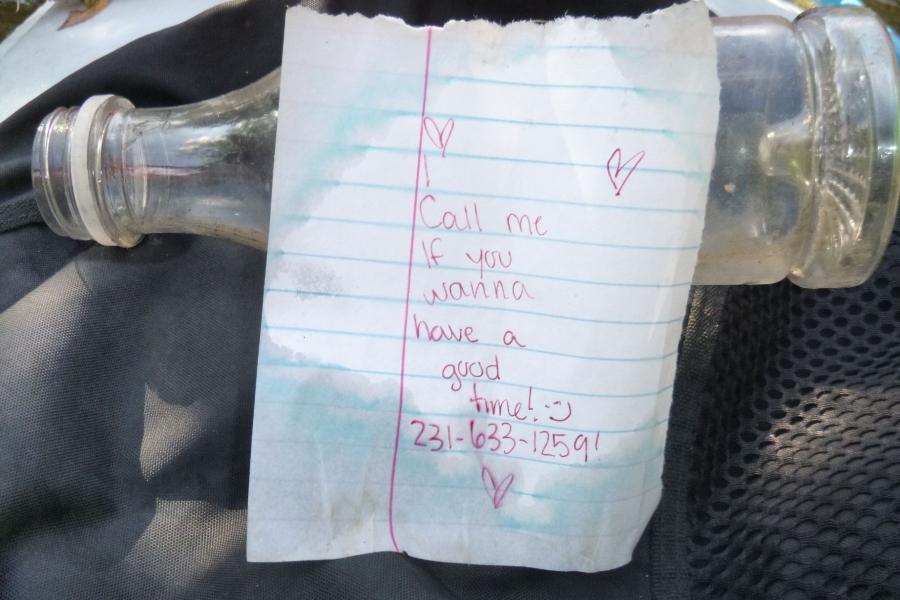 Call me
If you
wanna
have a
good
time! :-)
231-633-1259!